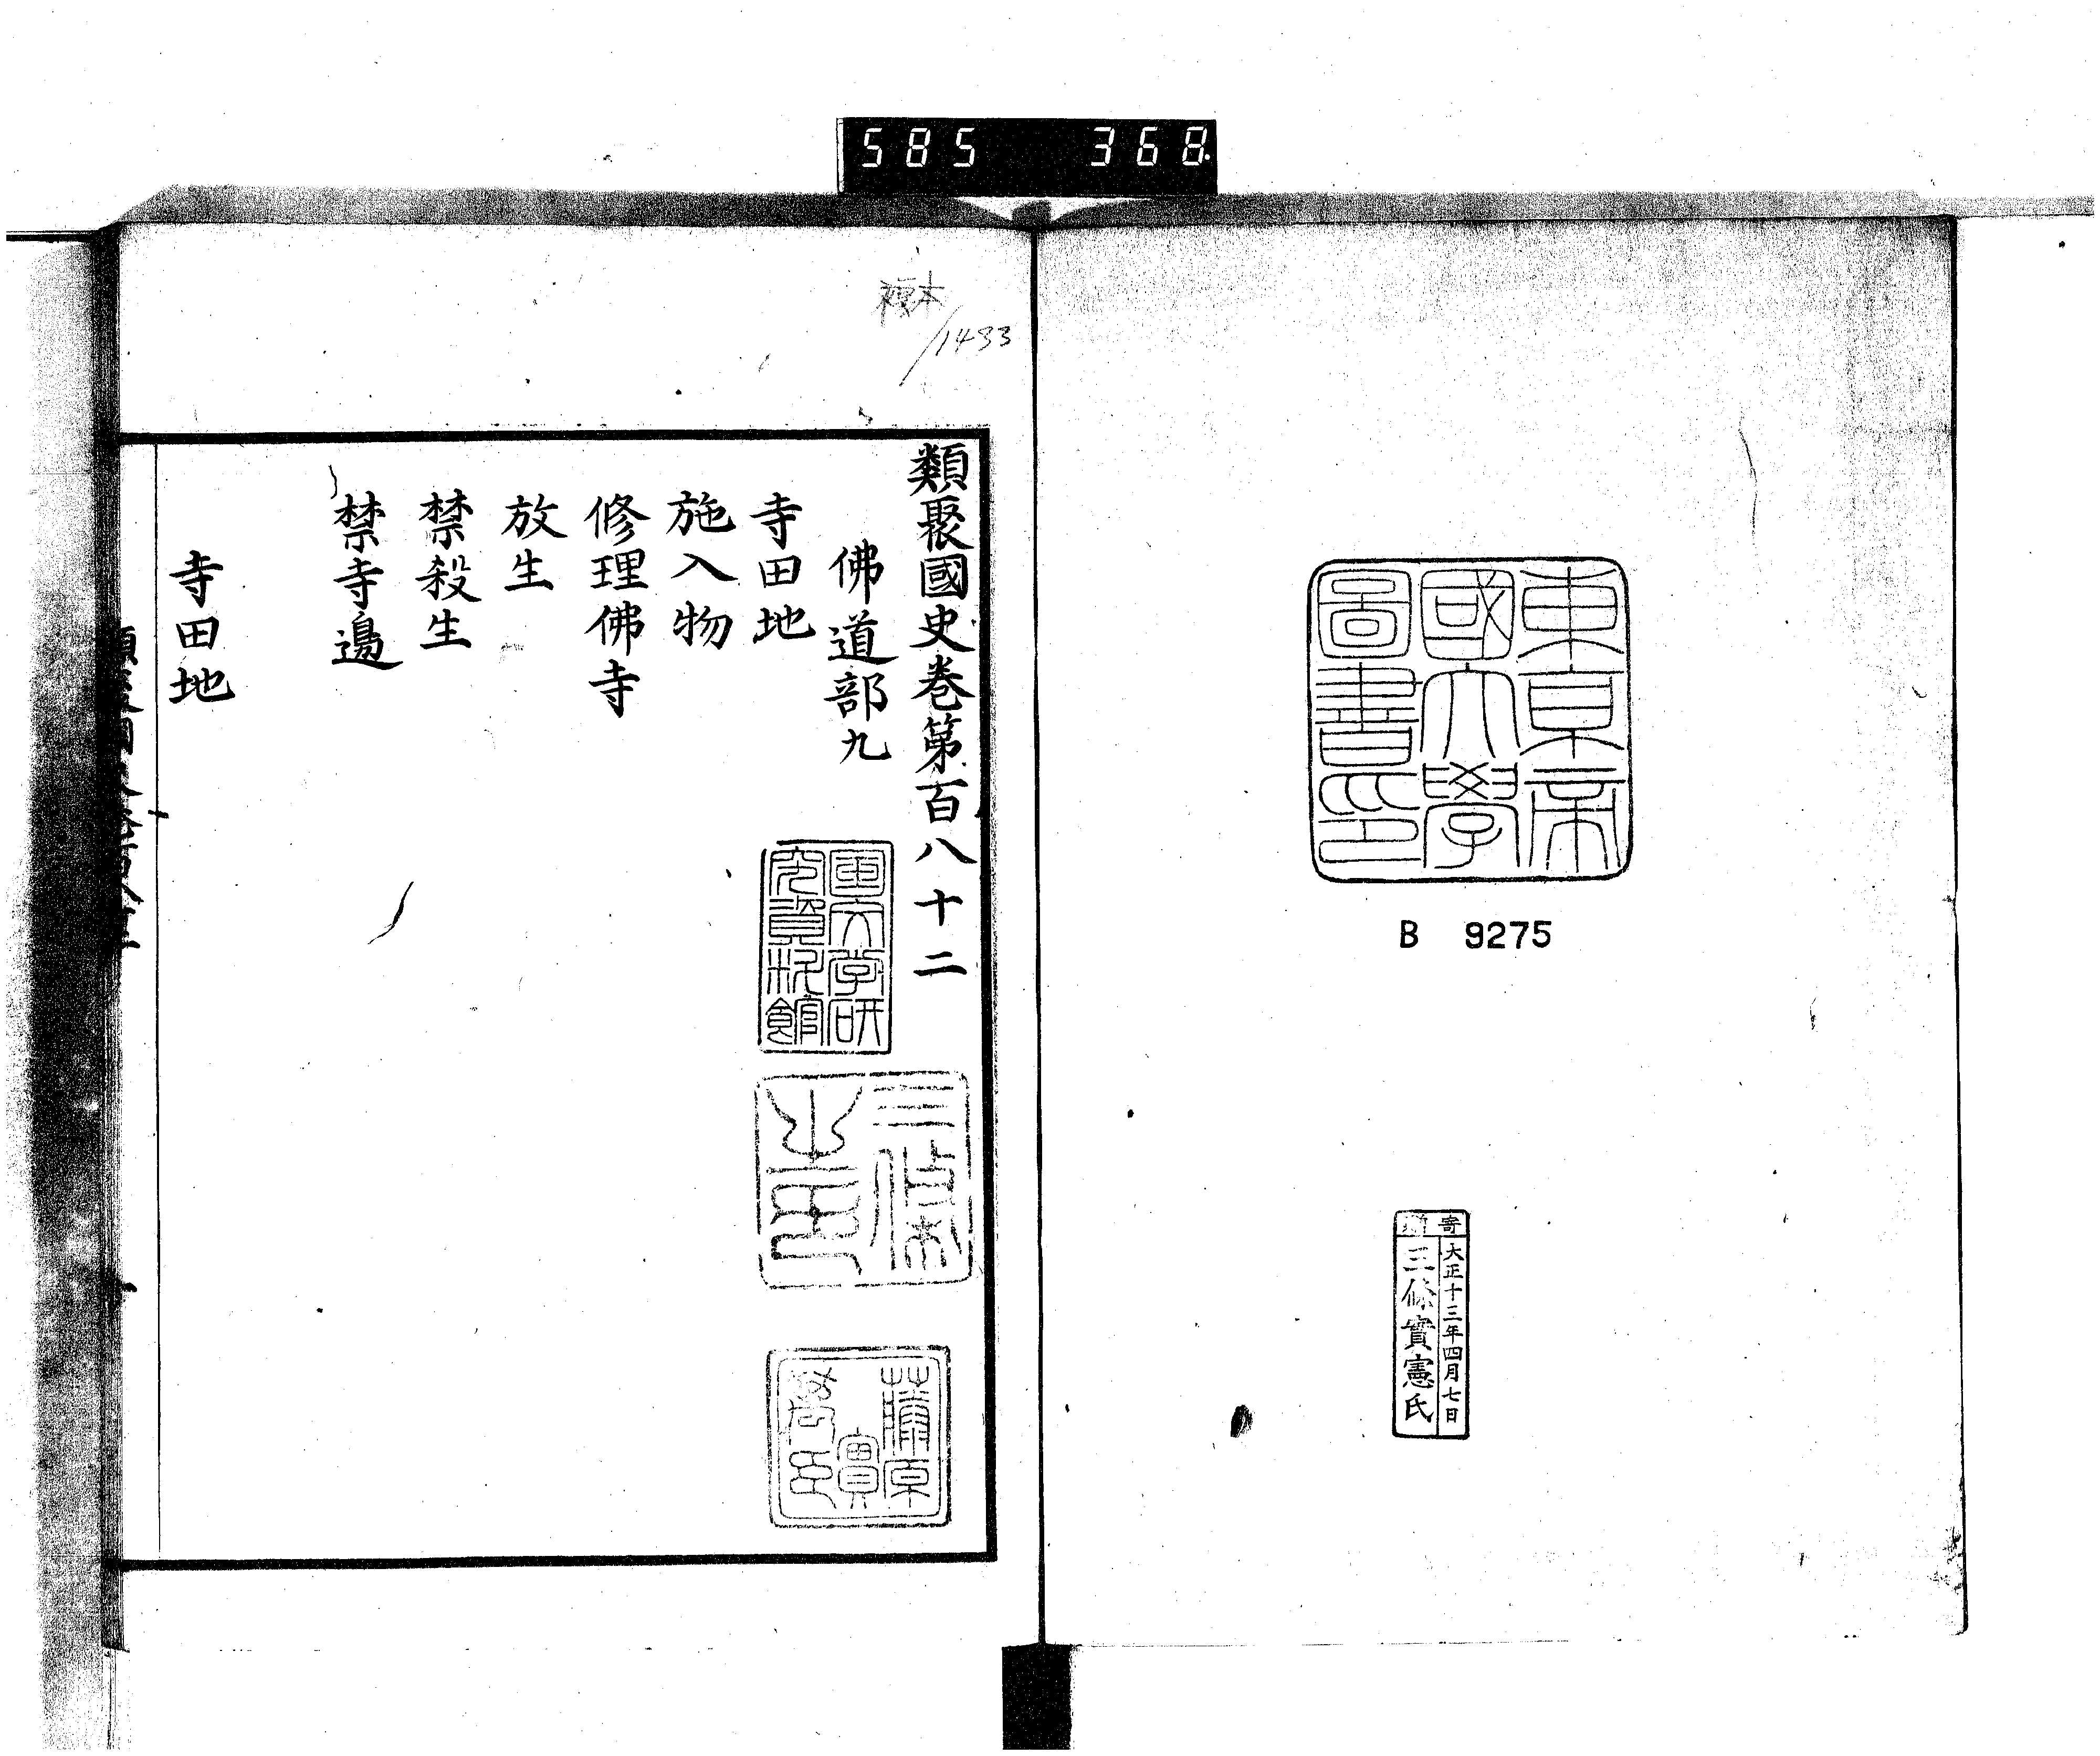 585 368.
東京帝
國大學
圖書印
B 9275
寄贈
大正十三年四月七日
三條實憲氏
複本
/1433
類聚國史卷第百八十二
佛道部九
寺田地
施入物
修理佛寺
放生
禁殺生
禁寺邊
寺田地
國文学研
究資料館
三條
藤原
實
臣